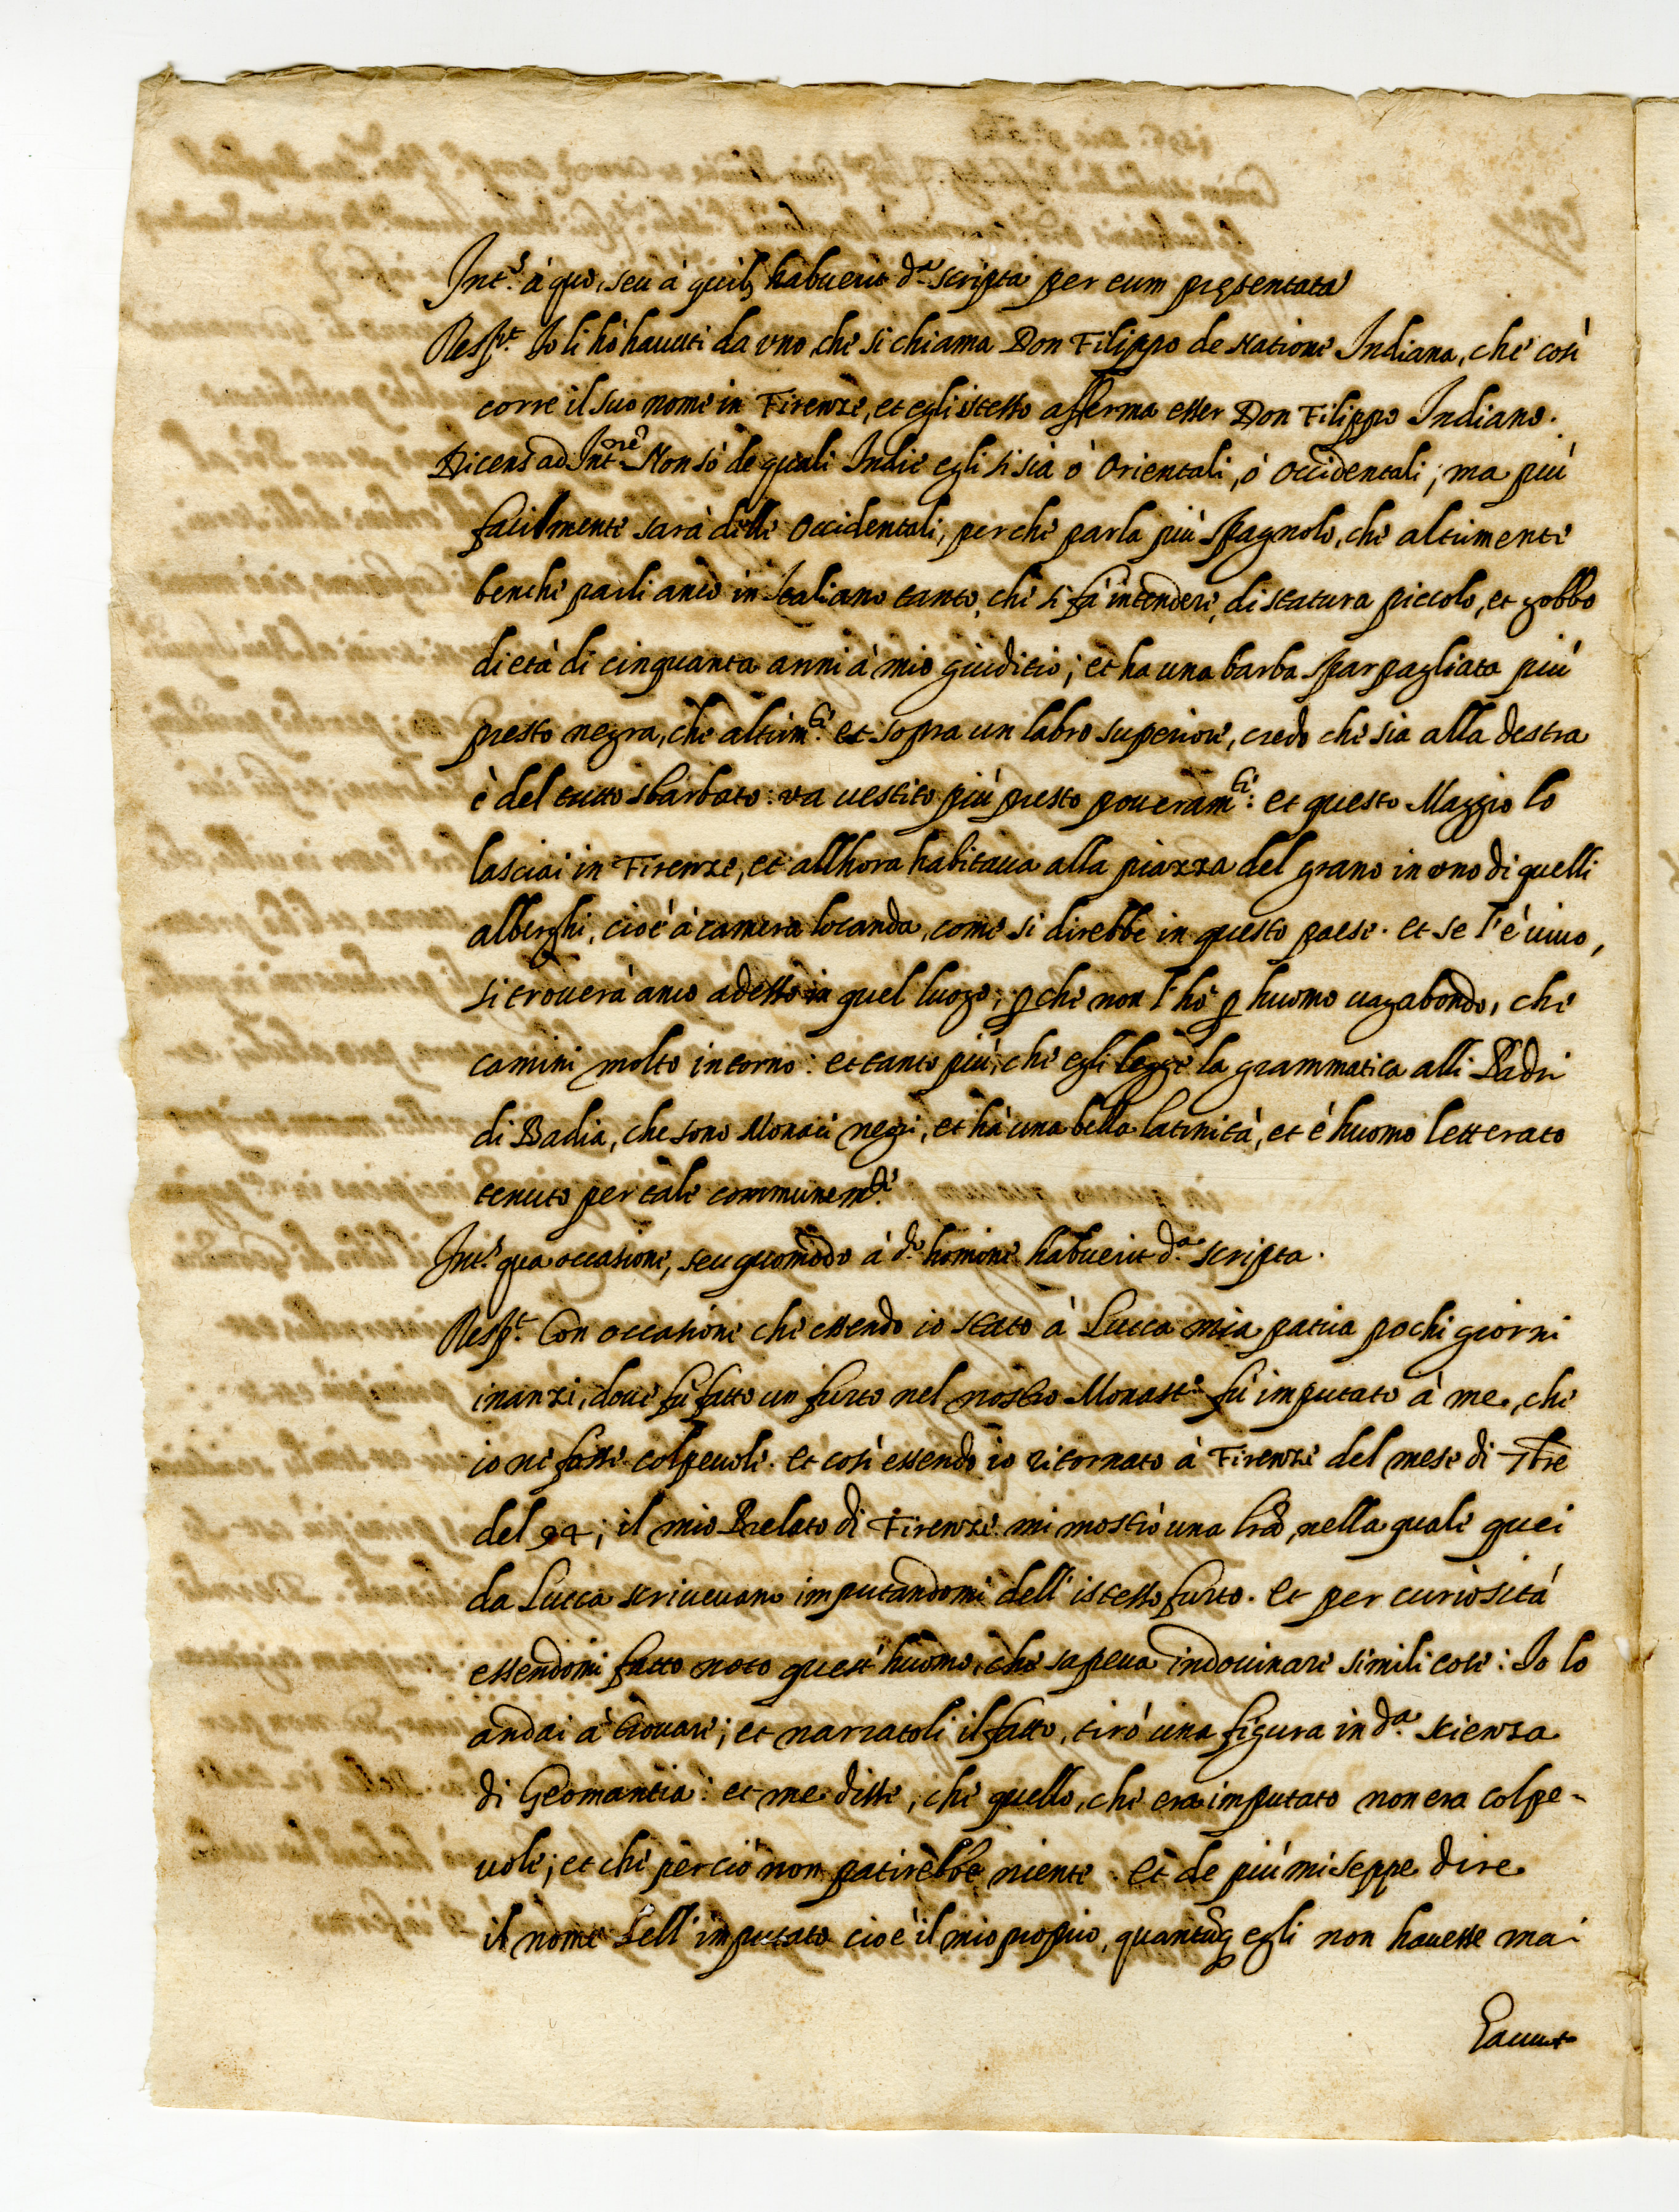 Int.s à quo, seu à quib. habuerit d.a scripta per eum presentata
Resp.t Io li hò hauuti da uno, che si chiama Don Filippo de natione Indiana, che così
corre il suo nome in Firenze, et egli istesso afferma esser Don Filippo Indiano.
Dicens ad Int.nē Non sò de quali Indie egli si sia ò Orientali, ò Occidentali; ma più
facilmente sarà delle Occidentali, perche parla più spagnolo, che altrimente
benche parli anco in Italiano tanto, che si fà intendere, di statura piccolo, et gobbo
di età di cinquanta anni à mio giuditio; et ha una barba sparpagliata più
presto negra, che altrim.te et sopra un labro superiore, credo che sia alla destra
è del tutto sbarbato: va uestito più presto poueram.te: et questo Maggio lo
lasciai in Firenze, et allhora habitaua alla piazza del grano in uno di quelli
alberghi, cioè à camera locanda, come si direbbe in questo paese. et se l'è uiuo,
si trouerà anco adesso in quel luogo; p che non l'hò p huomo uagabondo, che
camini molto intorno: et tanto più, che egli legge la grammatica alli Padri
di Badia, che sono Monaci negri, et hà una bella latinità, et è huomo letterato
tenuto per tale communem.te
Int.s qua occasione, seu quomodo à d.o homine habuerit d.a scripta.
Resp.t Con occasione che essendo io stato à Lucca mia patria pochi giorni
inanzi, doue fù fatto un furto nel nostro Monast.o fù imputato à me, che
io ne fosse colpeuole. et così essendo io ritornato à Firenze del mese di 7bre
del 94; il mio Prelato di Firenze mi mostrò una lrā, nella quale quei
da Lucca scriueuano imputandomi dell'istesso furto. et per curiosità
essendomi fatto noto quest'huomo, che sapeua indouinare simili cose: Io lo
andai à trouare; et narratoli il fatto, tirò una figura in d.a scienza
di Geomantia: et me disse, che quello, che era imputato non era colpe-
uole; et che perciò non patirebbe niente. Et de più mi seppe dire
il nome dell'imputato cioè il mio proprio, quantūq egli non hauesse mai
hauuto